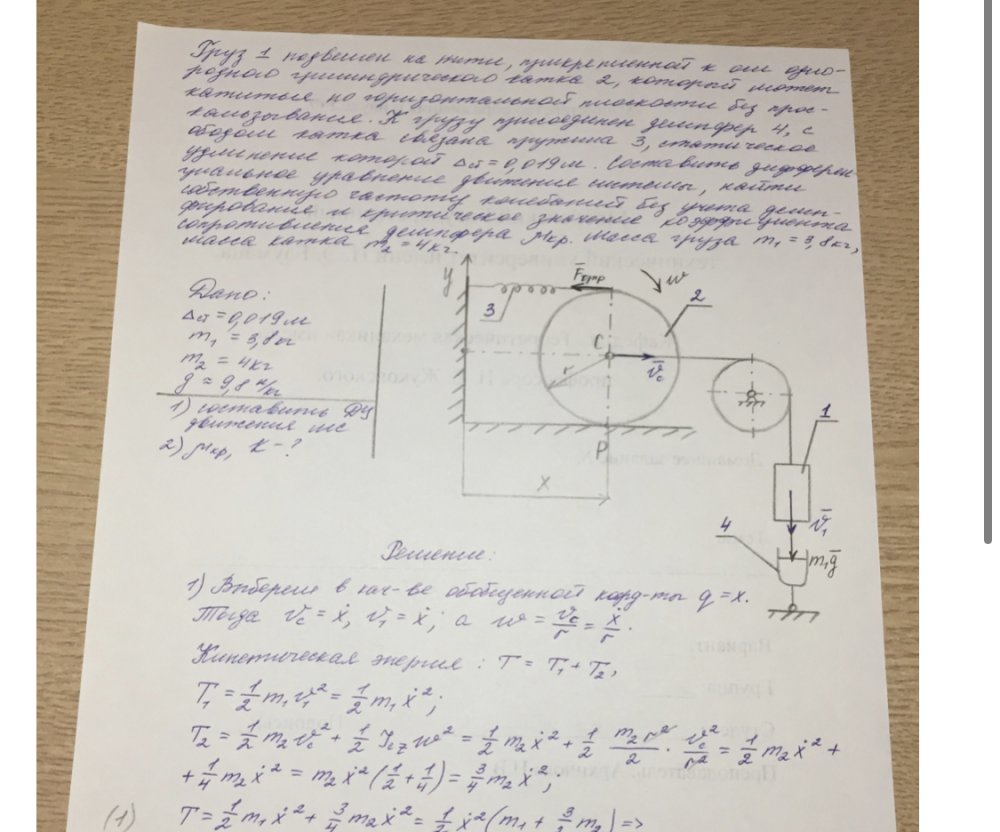 Груз 1 подвешен на нити, прикрепленной к оси одно-
родного цилиндрического катка 2, который может
катиться по горизонтальной плоскости без прос-
кальзывания. К грузу присоединен демпфер 4, с
ободом катка связана пружина 3, статическое
удлинение которой Δст = 0,019 м. Составить дифферен-
циальное уравнение движения системы, найти
собственную частоту колебаний без учета демп-
фирования и критическое значение коэффициента
сопротивления демпфера μкр. Масса груза m₁ = 3,8кг,
масса катка m₂ = 4кг.
Дано:
Δст = 0,019 м
m₁ = 3,8кг
m₂ = 4кг
g = 9,8 н/кг
1) составить ДУ
движения мс
2) μкр, K - ?
y
F̄упр
ω
2
3
C
v̄c
r
1
P
x
4
v̄₁
m₁ḡ
Решение:
1) Выберем в кач-ве обобщенной коорд-ты q = x.
Тогда vc = ẋ, v₁ = ẋ; а ω = vc/r = ẋ/r.
Кинетическая энергия: T = T₁ + T₂,
T₁ = 1/2 m₁v₁² = 1/2 m₁ẋ²;
T₂ = 1/2 m₂vc² + 1/2 Jcz ω² = 1/2 m₂ẋ² + 1/2 m₂r²/2 · vc²/r² = 1/2 m₂ẋ² +
+ 1/4 m₂ẋ² = m₂ẋ²(1/2 + 1/4) = 3/4 m₂ẋ²;
(1) T = 1/2 m₁ẋ² + 3/4 m₂ẋ² = 1/2 ẋ²(m₁ + 3/2 m₂) =>